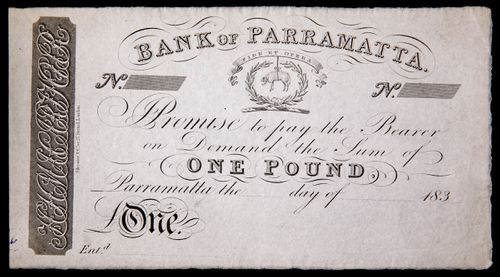 BANK OF PARRAMATTA.
FIDE ET OPERA
No. No.
Promise to pay the Bearer
on Demand the Sum of
ONE POUND,
Parramatta the day of 183
£One.
Ent.d